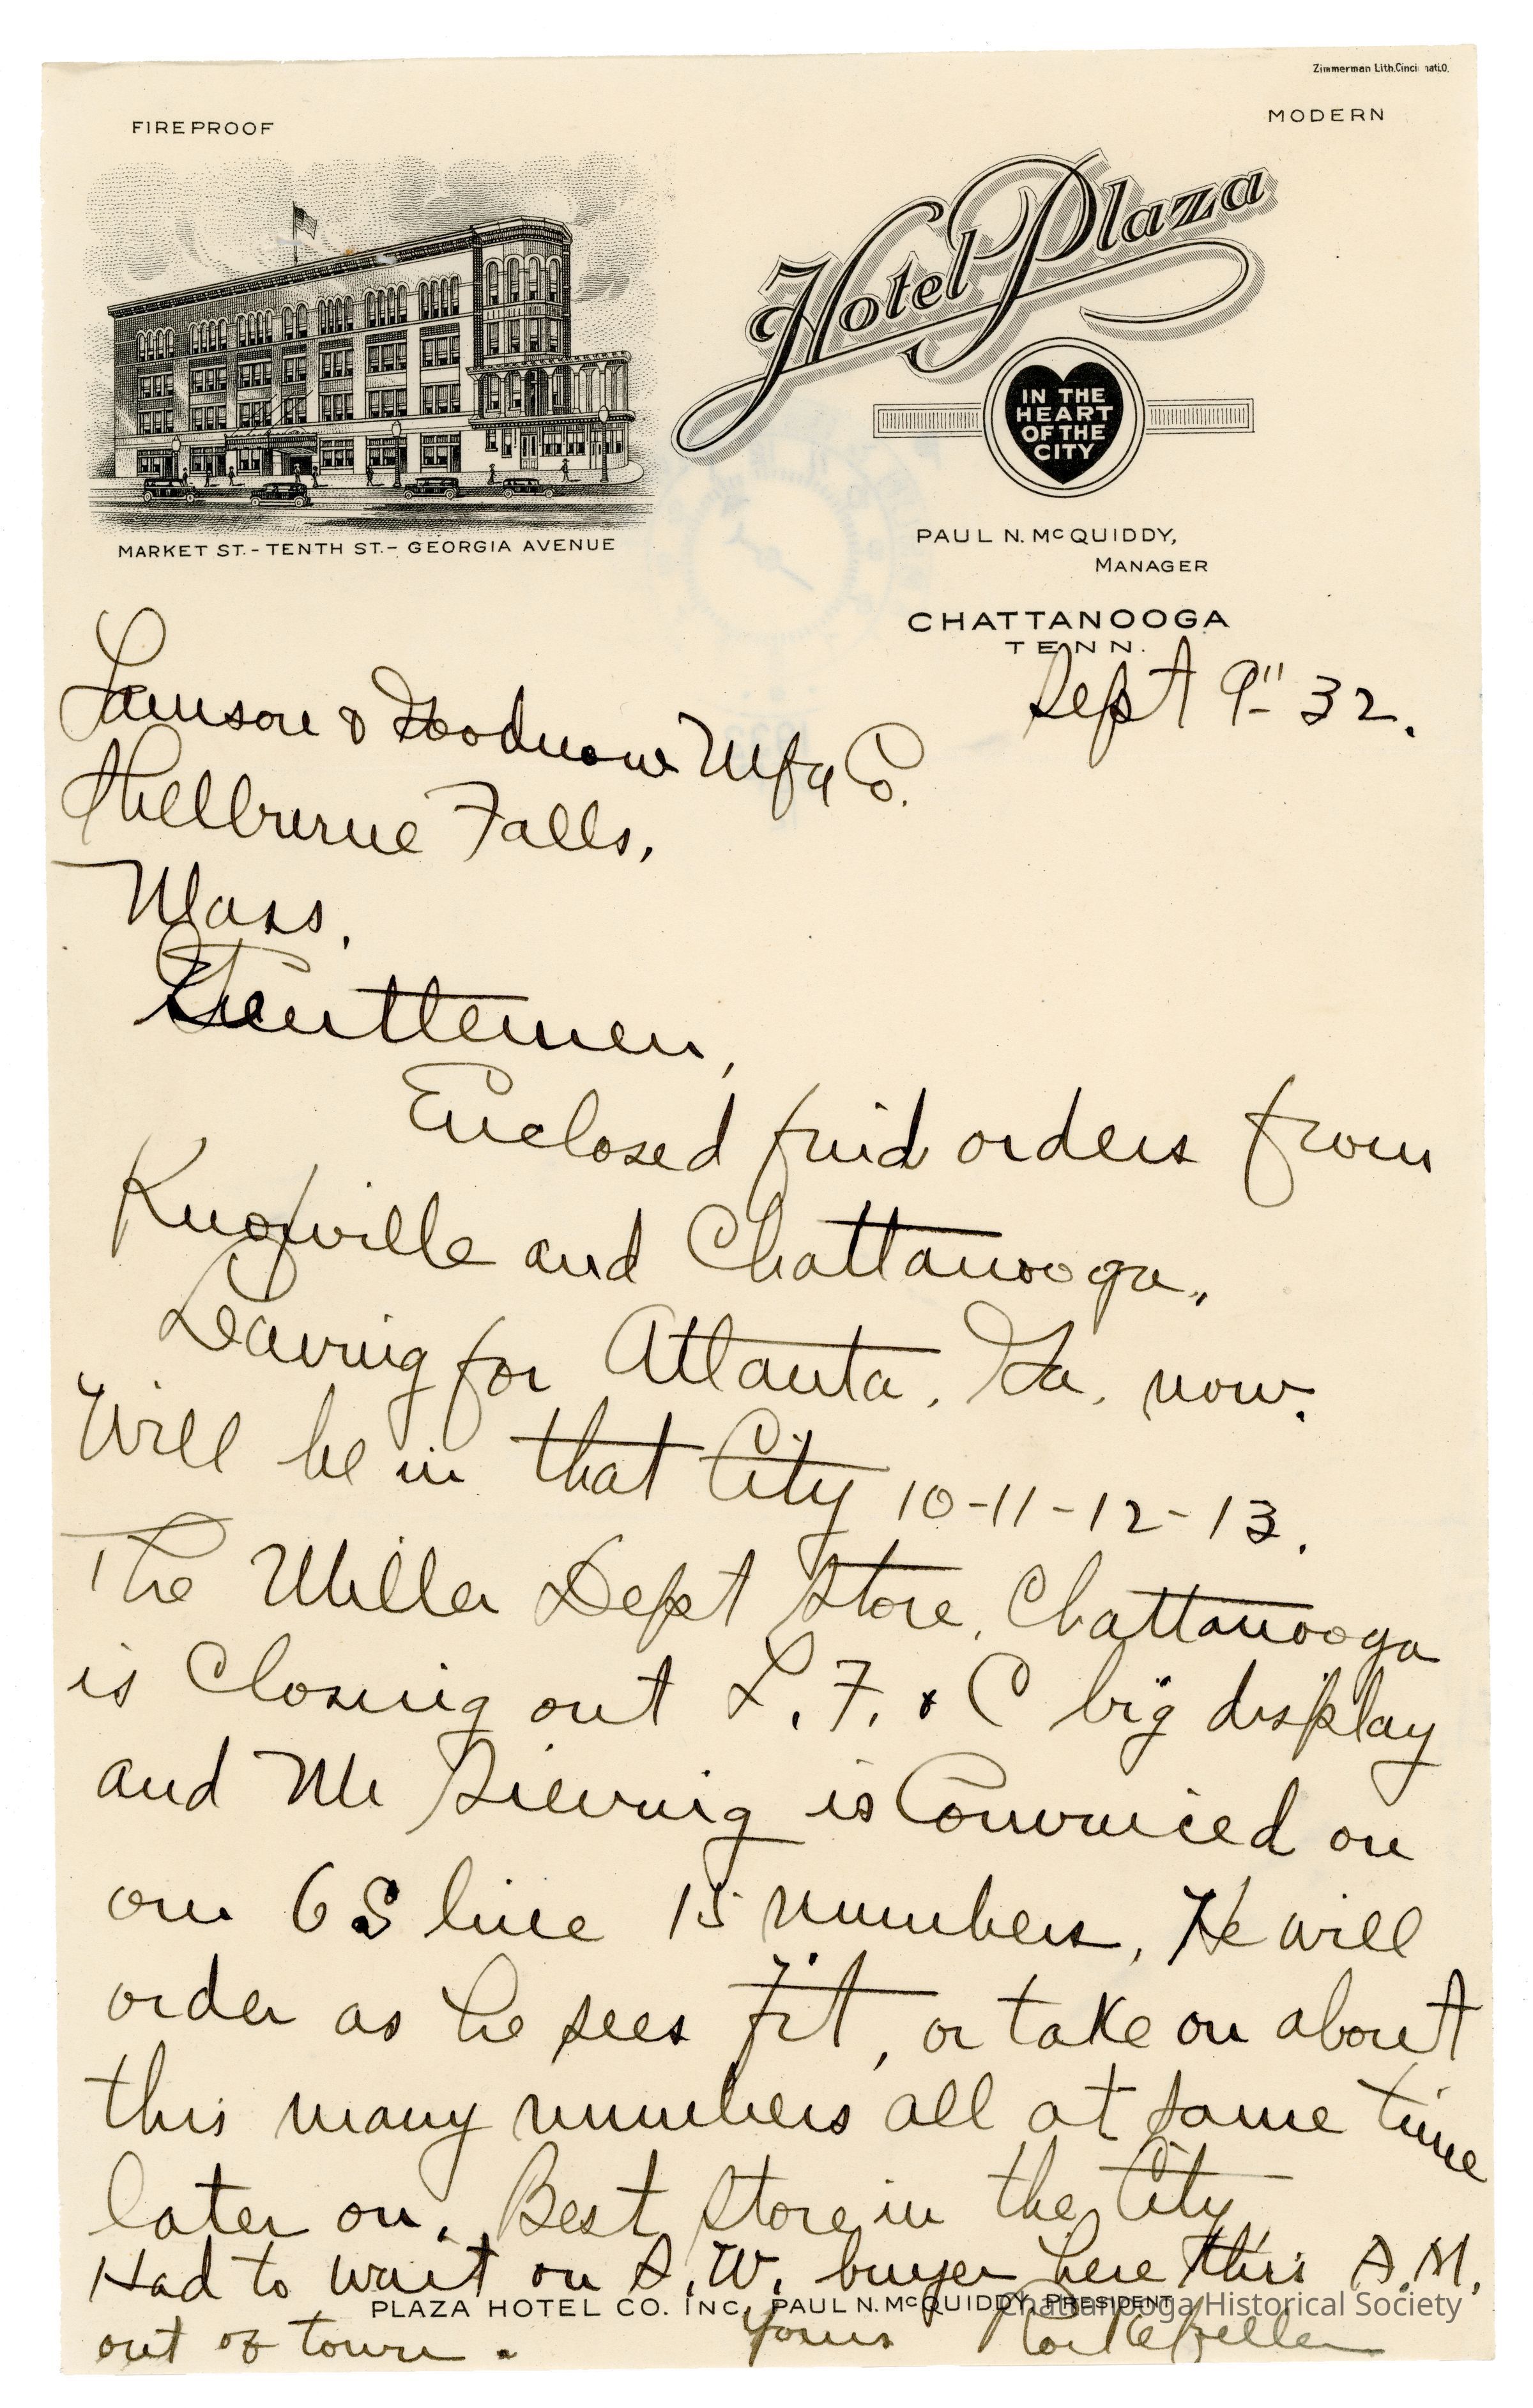 Zimmerman Lith. Cincinnati.O.
FIREPROOF
MODERN
Hotel Plaza
IN THE
HEART
OF THE
CITY
MARKET ST. - TENTH ST. - GEORGIA AVENUE
PAUL N. McQUIDDY,
MANAGER
CHATTANOOGA
TENN.
Sept 9" 32.
Lamson & Goodnow Mfg Co.
Shelburne Falls,
Mass.
Gentlemen,
Enclosed find orders from
Knoxville and Chattanooga.
Leaving for Atlanta, Ga. now.
Will be in that City 10-11-12-13.
The Miller Dept Store, Chattanooga
is Closing out L. F. & C big display
and Mr is Convinced on
our 6S line 15 numbers, He will
order as he sees fit, or take on about
this many numbers all at same time
later on. Best Store in the City
Had to wait on S. W. buyer here this A.M.
PLAZA HOTEL CO. INC. PAUL N. McQUIDDY, PRESIDENT
Chattanooga Historical Society
out of town. Yours